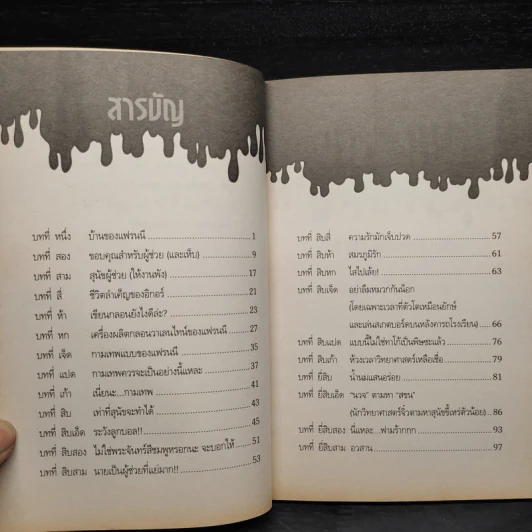 สารบัญ
บทที่ หนึ่ง บ้านของแฟรนนี 1
บทที่ สอง ขอบคุณสำหรับผู้ช่วย (และเห็บ) 9
บทที่ สาม สุนัขผู้ช่วย (ให้งานพัง) 17
บทที่ สี่ ชีวิตลำเค็ญของอิกอร์ 21
บทที่ ห้า เขียนกลอนยังไงดีล่ะ? 23
บทที่ หก เครื่องผลิตกลอนวาเลนไทน์ของแฟรนนี 27
บทที่ เจ็ด กามเทพแบบของแฟรนนี 35
บทที่ แปด กามเทพควรจะเป็นอย่างนี้แหละ 37
บทที่ เก้า เนี่ยนะ....กามเทพ 41
บทที่ สิบ เท่าที่สุนัขจะทำได้ 43
บทที่ สิบเอ็ด ระวังลูกบอล!! 45
บทที่ สิบสอง ไม่ใช่พระจันทร์สีชมพูหรอกนะ จะบอกให้ 51
บทที่ สิบสาม นายเป็นผู้ช่วยที่แย่มาก!! 53
บทที่ สิบสี่ ความรักมักเจ็บปวด 57
บทที่ สิบห้า สมรภูมิรัก 61
บทที่ สิบหก ใส่ไปเล้ย! 63
บทที่ สิบเจ็ด อย่าลืมหมวกกันน็อก
(โดยเฉพาะเวลาที่ตัวโตเหมือนยักษ์
และเล่นสเกตบอร์ดบนหลังคารถโรงเรียน) 66
บทที่ สิบแปด แบบนี้ไม่ใช่ทาโก้เป็นพิษซะแล้ว 76
บทที่ สิบเก้า ห้วงเวลาวิทยาศาสตร์เหลือเชื่อ 79
บทที่ ยี่สิบ น้ำนมแสนอร่อย 81
บทที่ ยี่สิบเอ็ด "นวจ" ตามหา "สขน"
(นักวิทยาศาสตร์จิ๋วตามหาสุนัขขี้เหร่ตัวน้อย) 86
บทที่ ยี่สิบสอง นี่แหละ....ฟามร้ากกก 93
บทที่ ยี่สิบสาม อวสาน 97